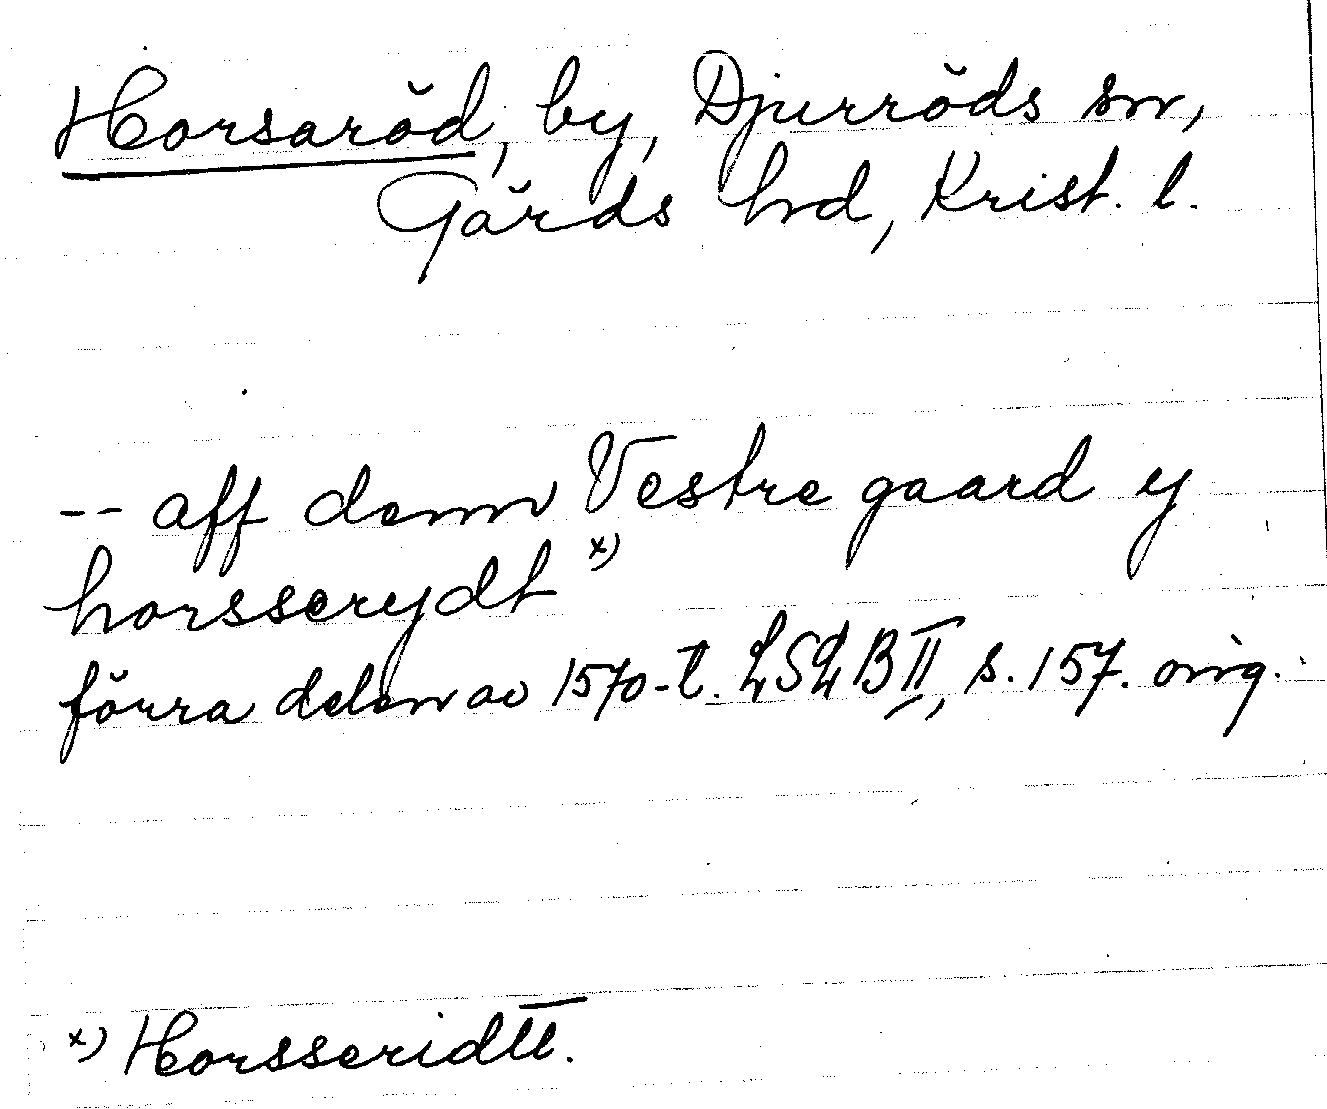 Horsaröd, by, Djurröds sn,
Gärds hrd, Krist. l.
-- aff denn Vestre gaard y
horsserydt x)
förra delen av 1570-t. LSLB II, s. 157. orig.
x) Horsseridtt.